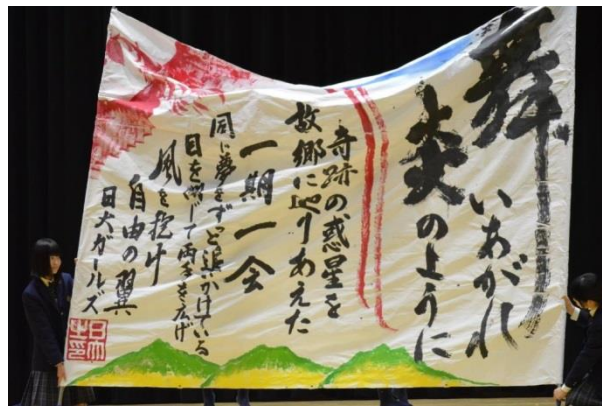 舞いあがれ
炎のように
奇跡の惑星を
故郷に巡りあえた
一期一会
同じ夢をずっと追いかけている
目を閉じて両手を広げ
風を抱け
自由の翼
日大ガールズ